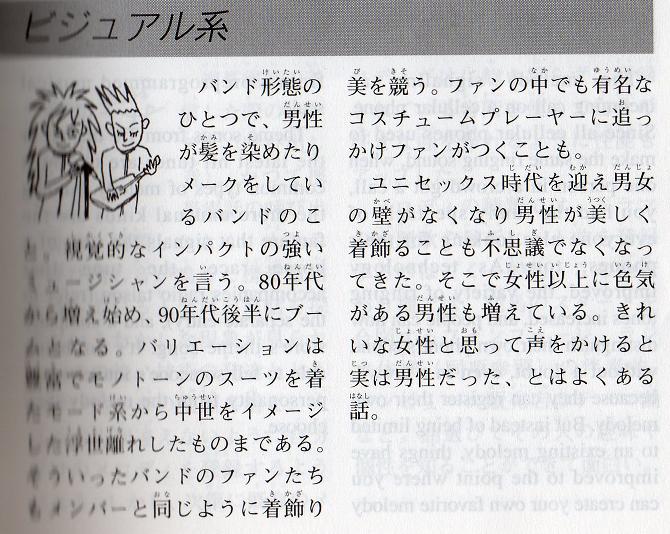 ビジュアル系
バンド形態の
ひとつで、男性
が髪を染めたり
メークをしてい
るバンドのこ
と。視覚的なインパクトの強い
ミュージシャンを言う。80年代
から増え始め、90年代後半にブー
ムとなる。バリエーションは
豊富でモノトーンのスーツを着
たモード系から中世をイメージ
した浮世離れしたものまである。
そういったバンドのファンたち
もメンバーと同じように着飾り
美を競う。ファンの中でも有名な
コスチュームプレーヤーに追っ
かけファンがつくことも。
ユニセックス時代を迎え男女
の壁がなくなり男性が美しく
着飾ることも不思議でなくなっ
てきた。そこで女性以上に色気
がある男性も増えている。きれ
いな女性と思って声をかけると
実は男性だった、とはよくある
話。
because they can register their own
melody. But instead of being limited
to an existing melody, things have
improved to the point where you
can create your own favorite melody